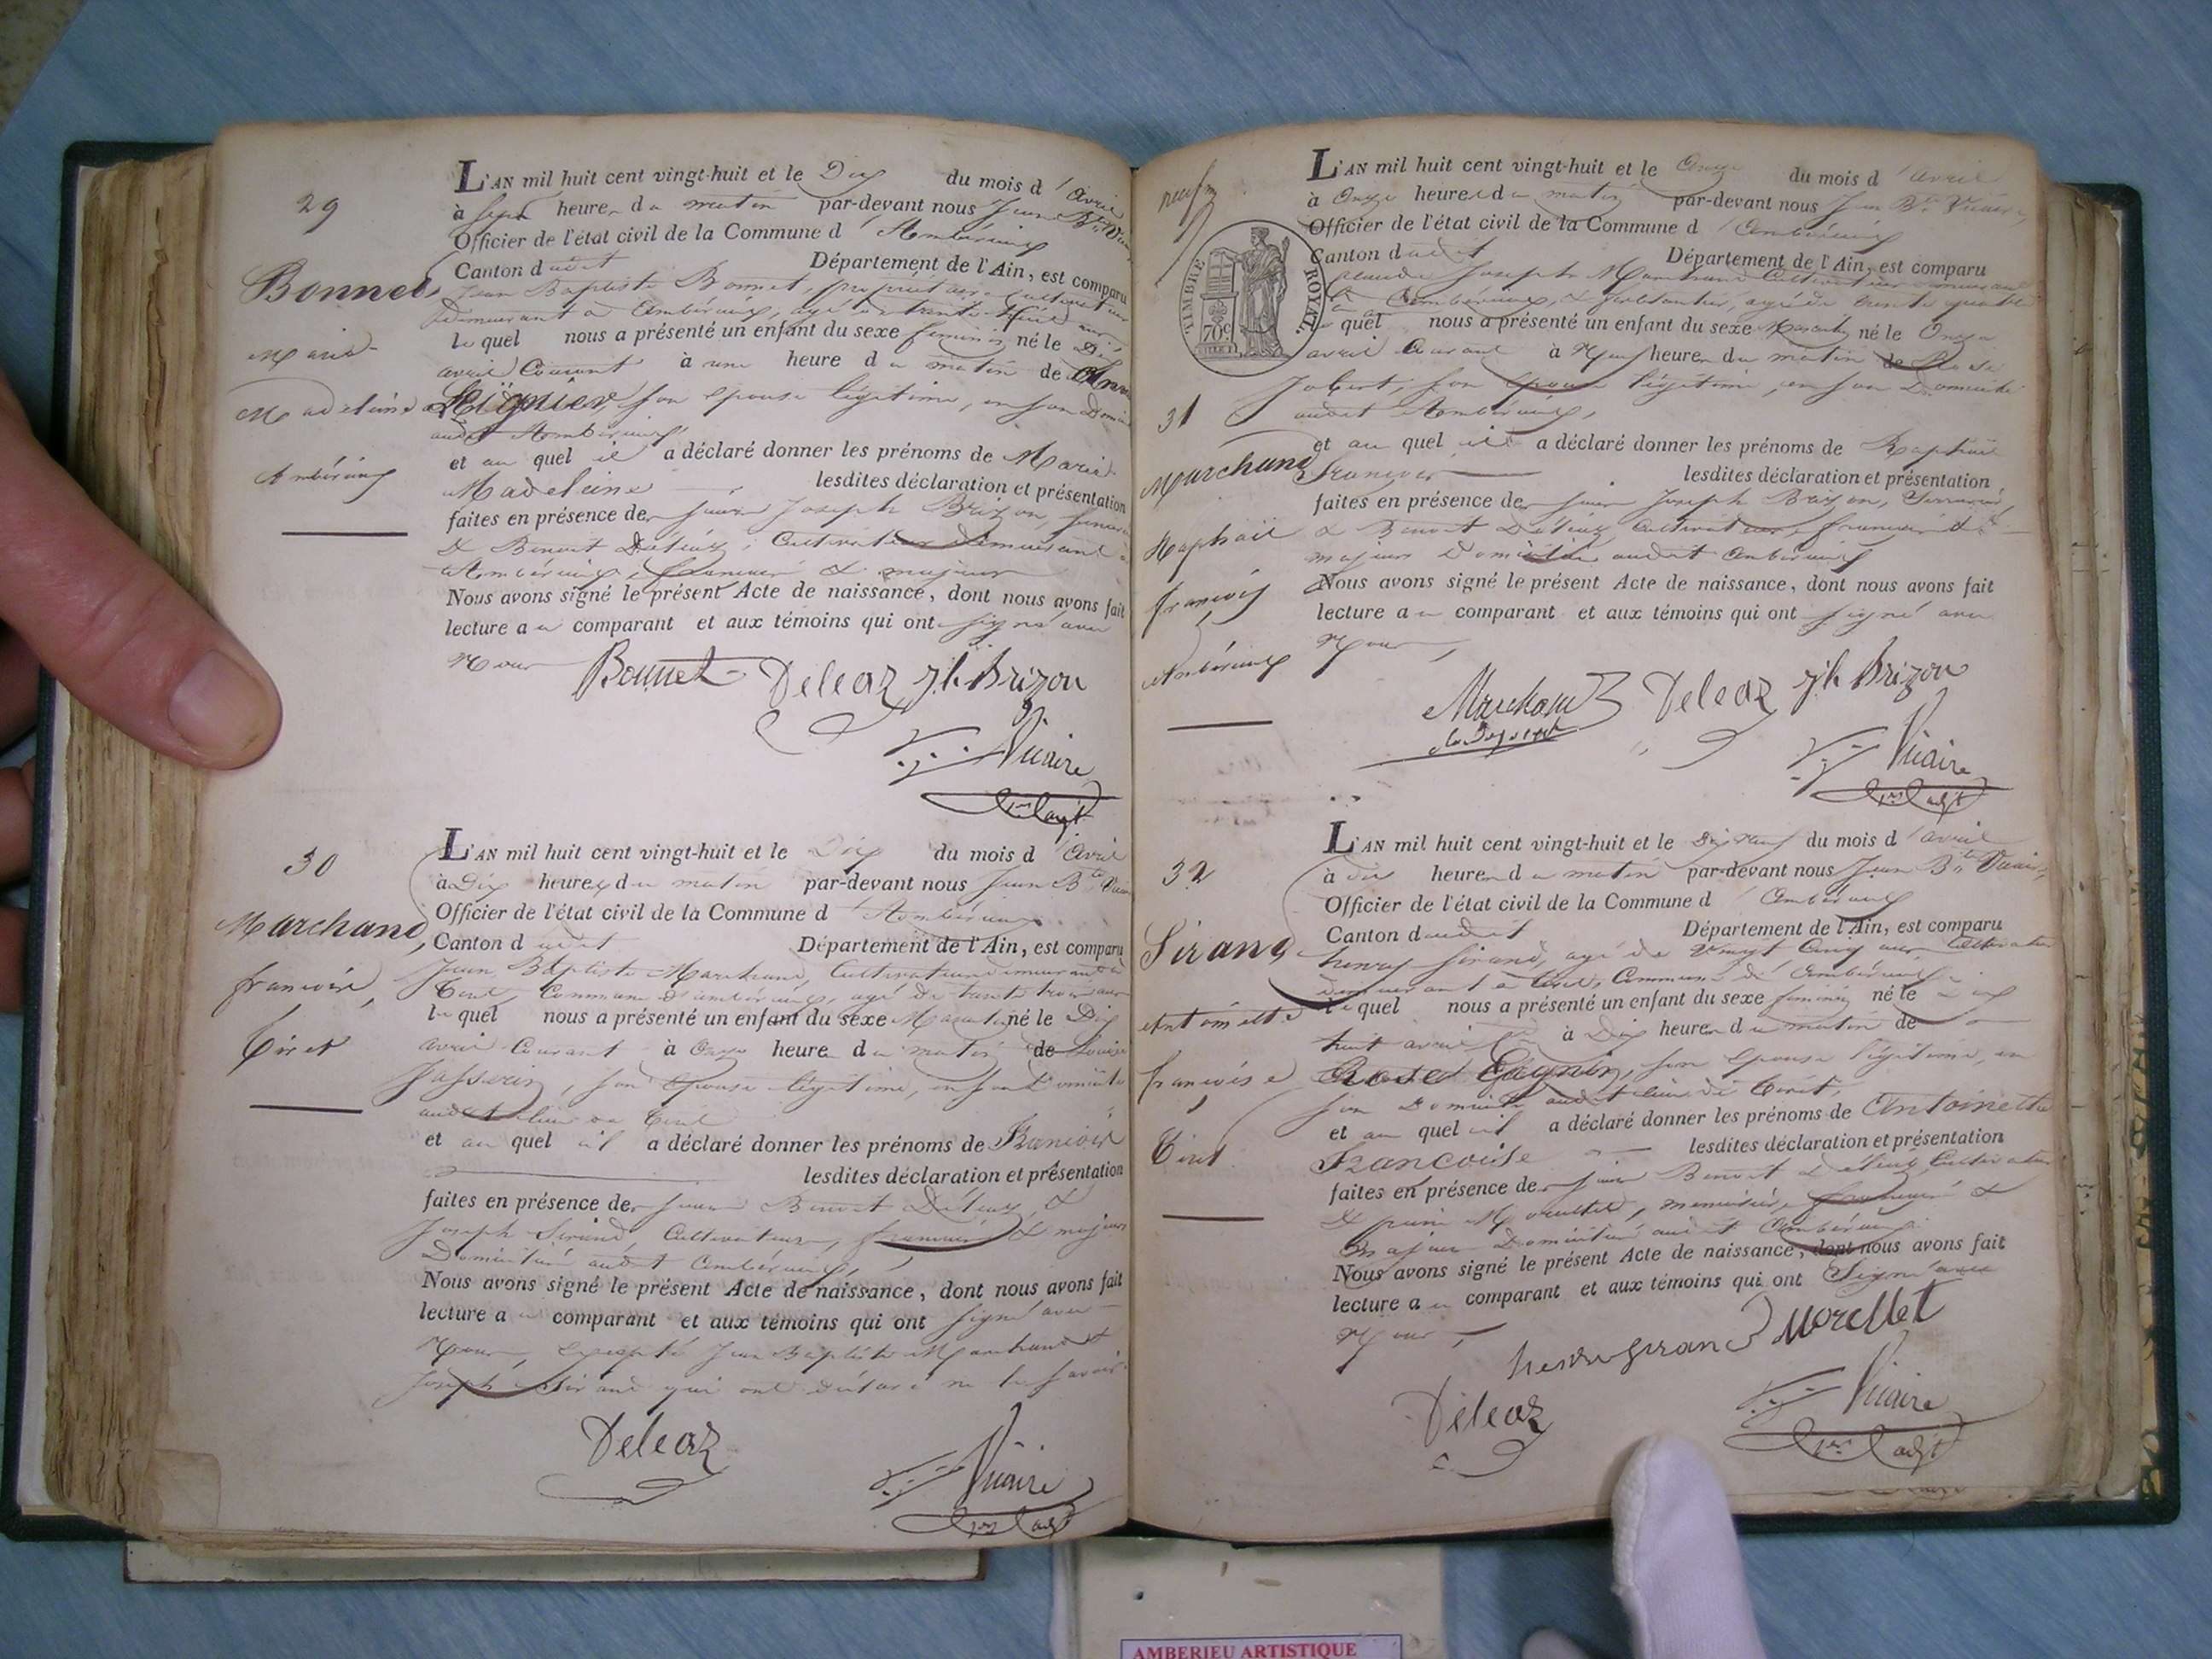 29
Bonnet
Marie
Madeleine
Ambérieux
L'AN mil huit cent vingt-huit et le Dix du mois d'avril
à sept heures du matin par-devant nous Jean Bte Vicaire
Officier de l'état civil de la Commune d'Ambérieux
Canton dudit Département de l'Ain, est comparu
Jean Baptiste Bonnet, propriétaire cultivateur
demeurant à Ambérieux, agé de trente
lequel nous a présenté un enfant du sexe féminin né le Dix
avril Courant à une heure du matin de
son épouse légitime, en son Domicile
audit Ambérieux
et au quel il a déclaré donner les prénoms de Marie
Madeleine lesdites déclaration et présentation
faites en présence de Joseph Brizon,
& Benoit Deleaz, Cultivateur demeurant à
Ambérieux, & majeur
Nous avons signé le présent Acte de naissance, dont nous avons fait
lecture au comparant et aux témoins qui ont signé avec
Nous
Bonnet Deleaz jh Brizon
Vicaire
30
Marchand,
françois,
Tiret
L'AN mil huit cent vingt-huit et le Dix du mois d'avril
à Dix heures du matin par-devant nous Jean Bte Vicaire
Officier de l'état civil de la Commune d'Ambérieux
Canton dudit Département de l'Ain, est comparu
Jean Baptiste Marchand, Cultivateur demeurant à
Tiret, Commune d'ambérieux, agé de trente trois ans
lequel nous a présenté un enfant du sexe Masculin né le Dix
avril Courant à Onze heure du matin de Louise
son épouse légitime, en son Domicile
audit lieu de Tiret
et au quel il a déclaré donner les prénoms de François
lesdites déclaration et présentation
faites en présence de Benoit Deleaz, &
Joseph Sirand, Cultivateurs, & majeurs
Domiciliés audit Ambérieux,
Nous avons signé le présent Acte de naissance, dont nous avons fait
lecture au comparant et aux témoins qui ont signé avec
Nous, Jean Baptiste Marchand &
Joseph Sirand qui ont déclaré ne le savoir
Deleaz
Vicaire
neuf
TIMBRE ROYAL.
70c.
31
Marchand
Raphaël
françois
Ambérieux
L'AN mil huit cent vingt-huit et le Onze du mois d'avril
à Onze heures du matin par-devant nous Jean Bte Vicaire,
Officier de l'état civil de la Commune d'Ambérieux
Canton dudit Département de l'Ain, est comparu
Joseph Marchand Cultivateur demeurant
à Ambérieux, agé de trente quatre
quel nous a présenté un enfant du sexe Masculin né le Onze
avril Courant à Neuf heures du matin de Rose
son épouse légitime, en son Domicile
audit Ambérieux,
et au quel il a déclaré donner les prénoms de Raphaël
François lesdites déclaration et présentation
faites en présence de Joseph Brizon,
& Benoit Deleaz, Cultivateur, &
majeurs Domiciliés audit Ambérieux
Nous avons signé le présent Acte de naissance, dont nous avons fait
lecture au comparant et aux témoins qui ont signé avec
Nous,
Marchand Deleaz jh Brizon
Vicaire
32
Sirand
Antoinette
françoise
Tiret
L'AN mil huit cent vingt-huit et le Dix Neuf du mois d'avril
à dix heures du matin par-devant nous Jean Bte Vicaire,
Officier de l'état civil de la Commune d'Ambérieux
Canton dudit Département de l'Ain, est comparu
henry Sirand, agé de Vingt Cinq ans Cultivateur
demeurant à Tiret, Commune d'Ambérieux
lequel nous a présenté un enfant du sexe féminin né le Dix
huit avril à Dix heures du matin de
Rose Gagnin, son épouse légitime, en
son Domicile audit lieu de Tiret,
et au quel il a déclaré donner les prénoms de Antoinette
Francoise lesdites déclaration et présentation
faites en présence de Benoit Deleaz Cultivateur
& Morellet, menuisier, &
majeurs Domiciliés audit Ambérieux
Nous avons signé le présent Acte de naissance, dont nous avons fait
lecture au comparant et aux témoins qui ont Signé avec
Nous,
henry Sirand Morellet
Deleaz
Vicaire
AMBERIEU ARTISTIQUE